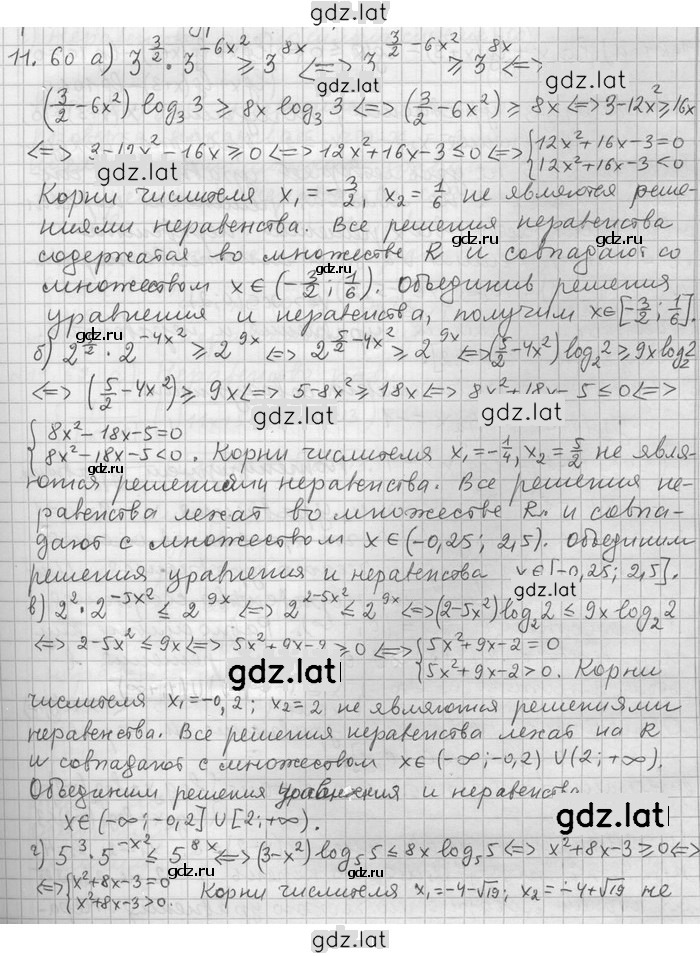 gdz.lat
11.60 а) 3^{3/2} · 3^{-6x²} ≥ 3^{8x} <=> 3^{3/2 - 6x²} ≥ 3^{8x} <=>
gdz.lat
(3/2 - 6x²) log₃ 3 ≥ 8x log₃ 3 <=> (3/2 - 6x²) ≥ 8x <=> 3-12x² ≥ 16x
<=> 3-12x² - 16x ≥ 0 <=> 12x² + 16x - 3 ≤ 0 <=> { 12x² + 16x - 3 = 0
12x² + 16x - 3 < 0
gdz.lat
Корни числителя x₁ = -3/2, x₂ = 1/6 не являются реше-
ниями неравенства. Все решения неравенства
содержатся во множестве R и совпадают со
множеством x ∈ (-3/2; 1/6). Объединив решения
уравнения и неравенства, получим x ∈ [-3/2; 1/6].
gdz.lat
б) 2^{5/2} · 2^{-4x²} ≥ 2^{9x} <=> 2^{5/2 - 4x²} ≥ 2^{9x} <=> (5/2 - 4x²) log₂ 2 ≥ 9x log₂ 2
<=> (5/2 - 4x²) ≥ 9x <=> 5-8x² ≥ 18x <=> 8x² + 18x - 5 ≤ 0 <=>
gdz.lat
{ 8x² - 18x - 5 = 0
8x² - 18x - 5 < 0 . Корни числителя x₁ = -1/4, x₂ = 5/2 не явля-
ются решениями неравенства. Все решения не-
равенства лежат во множестве R и совпа-
дают с множеством x ∈ (-0,25; 2,5). Объединим
решения уравнения и неравенства x ∈ [-0,25; 2,5].
gdz.lat
в) 2² · 2^{-5x²} ≤ 2^{9x} <=> 2^{2-5x²} ≤ 2^{9x} <=> (2-5x²) log₂ 2 ≤ 9x log₂ 2
<=> 2-5x² ≤ 9x <=> 5x² + 9x - 2 ≥ 0 <=> { 5x² + 9x - 2 = 0
5x² + 9x - 2 > 0. Корни
gdz.lat
числителя x₁ = -0,2; x₂ = 2 не являются решениями
неравенства. Все решения неравенства лежат на R
и совпадают с множеством x ∈ (-∞; -0,2) ∪ (2; +∞).
Объединим решения уравнения и неравенства
x ∈ (-∞; -0,2] ∪ [2; +∞).
gdz.lat
г) 5³ · 5^{-x²} ≤ 5^{8x} <=> (3-x²) log₅ 5 ≤ 8x log₅ 5 <=> x² + 8x - 3 ≥ 0 <=>
<=> { x² + 8x - 3 = 0
x² + 8x - 3 > 0. Корни числителя x₁ = -4-√19; x₂ = -4+√19 не
gdz.lat